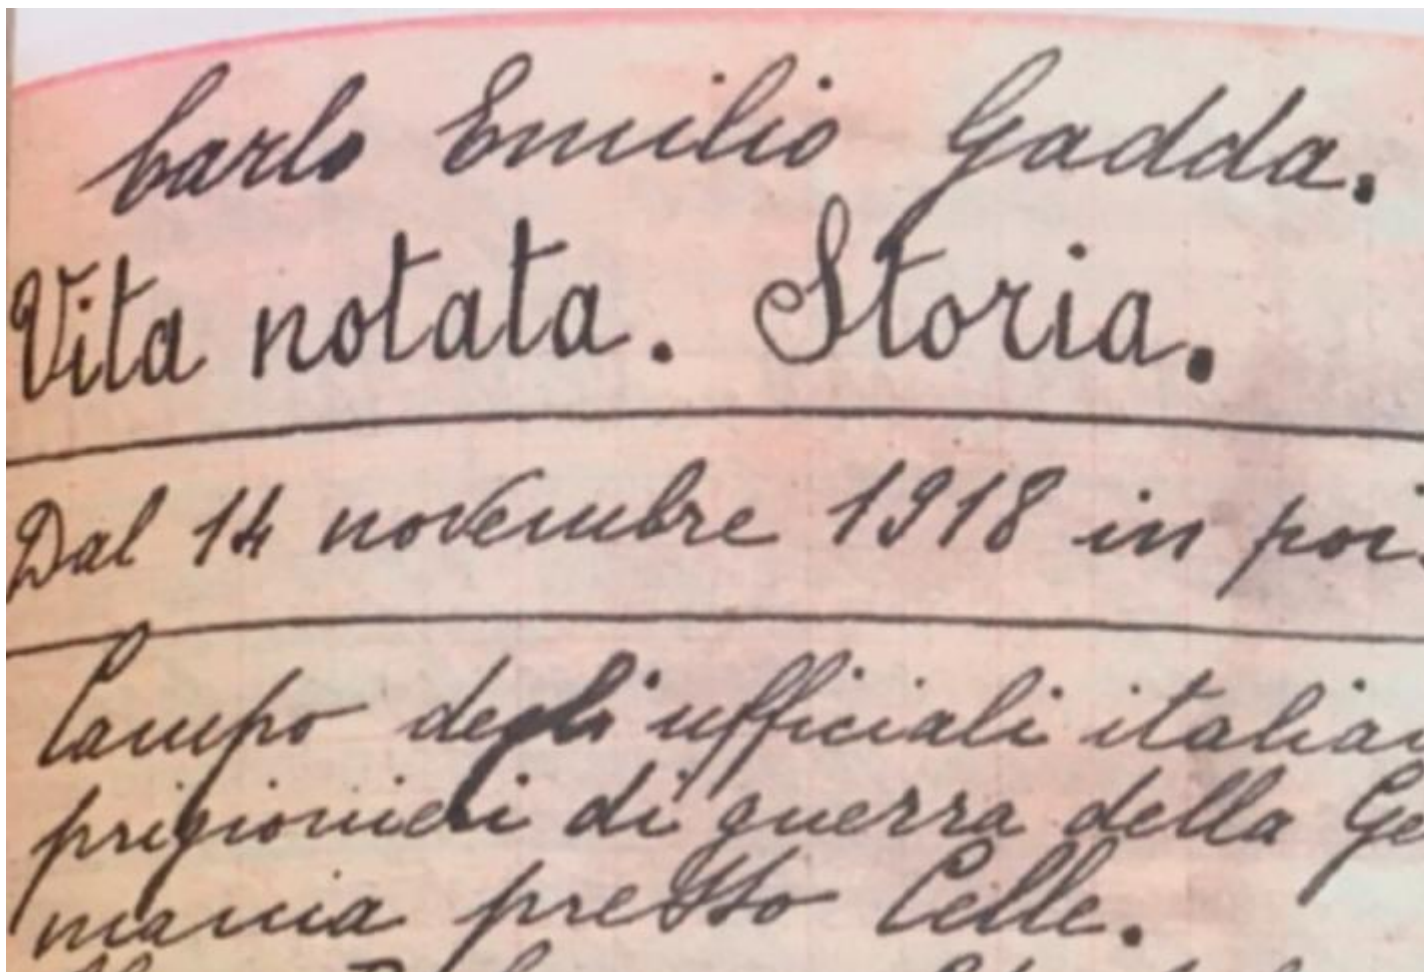 Carlo Emilio Gadda.
Vita notata. Storia.
Dal 14 novembre 1918 in poi.
Campo degli ufficiali italian
prigionieri di guerra della Ge
mania presso Celle.